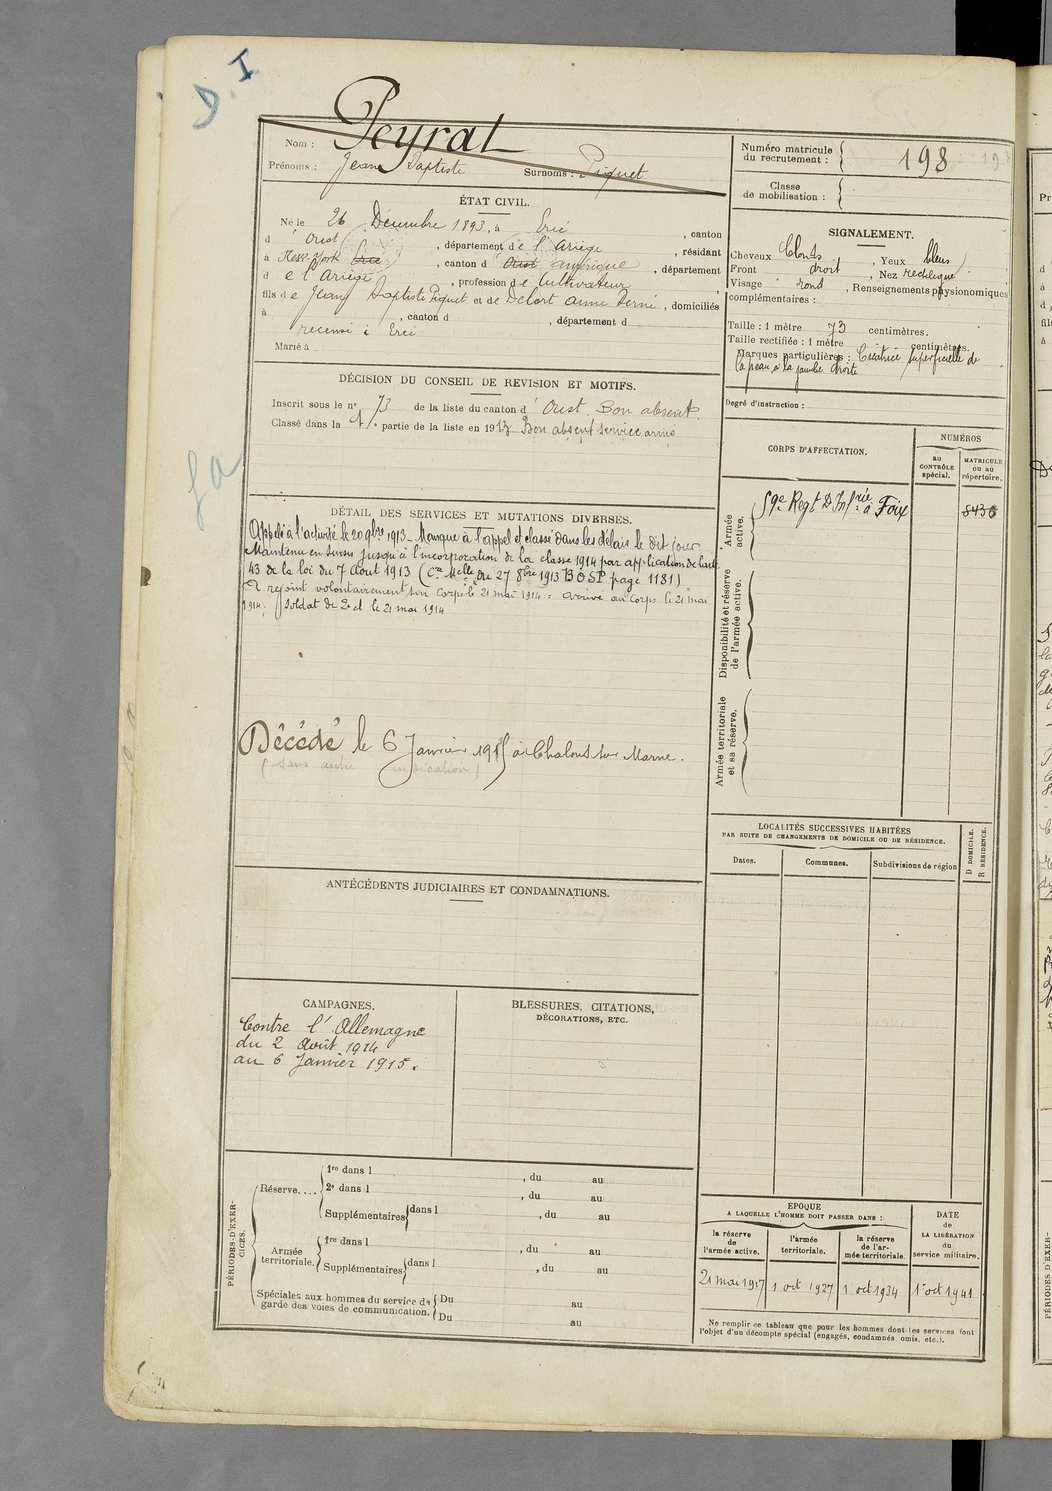 D. I
Nom : Peyrat
Prénoms : Jean Baptiste Surnoms : Piquet
Numéro matricule du recrutement : 198
Classe de mobilisation :
ÉTAT CIVIL.
Né le 26 Décembre 1893, à Ercé , canton
d' Oust , département de l'Ariège , résidant
à New-York Ercé , canton d' Oust amérique , département
de l'Ariège , profession de Cultivateur ,
fils de Jean Baptiste Piquet et de Delort Anne , domiciliés
à , canton d , département d
recensé à Ercé
Marié à
SIGNALEMENT.
Cheveux blonds , Yeux bleus
Front droit , Nez rectiligne
Visage rond , Renseignements physionomiques
complémentaires :
Taille : 1 mètre 73 centimètres.
Taille rectifiée : 1 mètre centimètres.
Marques particulières : Cicatrice superficielle de
la peau à la jambe droite
Degré d'instruction :
DÉCISION DU CONSEIL DE REVISION ET MOTIFS.
Inscrit sous le n° 73 de la liste du canton d' Oust. Bon absent.
Classé dans la 1 partie de la liste en 1913 Bon absent service armé
CORPS D'AFFECTATION.
NUMÉROS
au CONTRÔLE spécial.
MATRICULE ou au répertoire.
Armée active.
59e Regt D'Infrie à Foix
8436
Disponibilité et réserve de l'armée active.
Armée territoriale et sa réserve.
DÉTAIL DES SERVICES ET MUTATIONS DIVERSES.
Appelé à l'activité le 20 9bre 1913 - Manque à l'appel et classé dans les délais le dit jour
Maintenu en sursis jusqu'à l'incorporation de la classe 1914 par application de l'art.
43 de la loi du 7 Août 1913 (Cre Mlle du 27 8bre 1913 BOSP page 1181)
A rejoint volontairement son Corps le 21 mai 1914 = arrivé au Corps le 21 mai
1914. soldat de 2e cl le 21 mai 1914
Décédé le 6 Janvier 1915 à Chalons sur Marne.
(sans autre indication)
LOCALITÉS SUCCESSIVES HABITÉES
PAR SUITE DE CHANGEMENTS DE DOMICILE OU DE RÉSIDENCE.
Dates. Communes. Subdivisions de région
D DOMICILE.
R RÉSIDENCE.
ANTÉCÉDENTS JUDICIAIRES ET CONDAMNATIONS.
CAMPAGNES.
Contre l'Allemagne
du 2 Août 1914
au 6 Janvier 1915.
BLESSURES, CITATIONS,
DÉCORATIONS, ETC.
PÉRIODES D'EXERCICES.
Réserve.... 1re dans l , du au
2e dans l , du au
Supplémentaires dans l , du au
Armée territoriale. 1re dans l , du au
Supplémentaires dans l , du au
Spéciales aux hommes du service de Du au
garde des voies de communication. Du au
EPOQUE
A LAQUELLE L'HOMME DOIT PASSER DANS :
la réserve de l'armée active.
l'armée territoriale.
la réserve de l'armée territoriale.
DATE de LA LIBÉRATION du service militaire.
21 mai 1917 1 oct 1927 1 oct 1934 1er oct 1941
Ne remplir ce tableau que pour les hommes dont les services font
l'objet d'un décompte spécial (engagés, condamnés, omis, etc.).